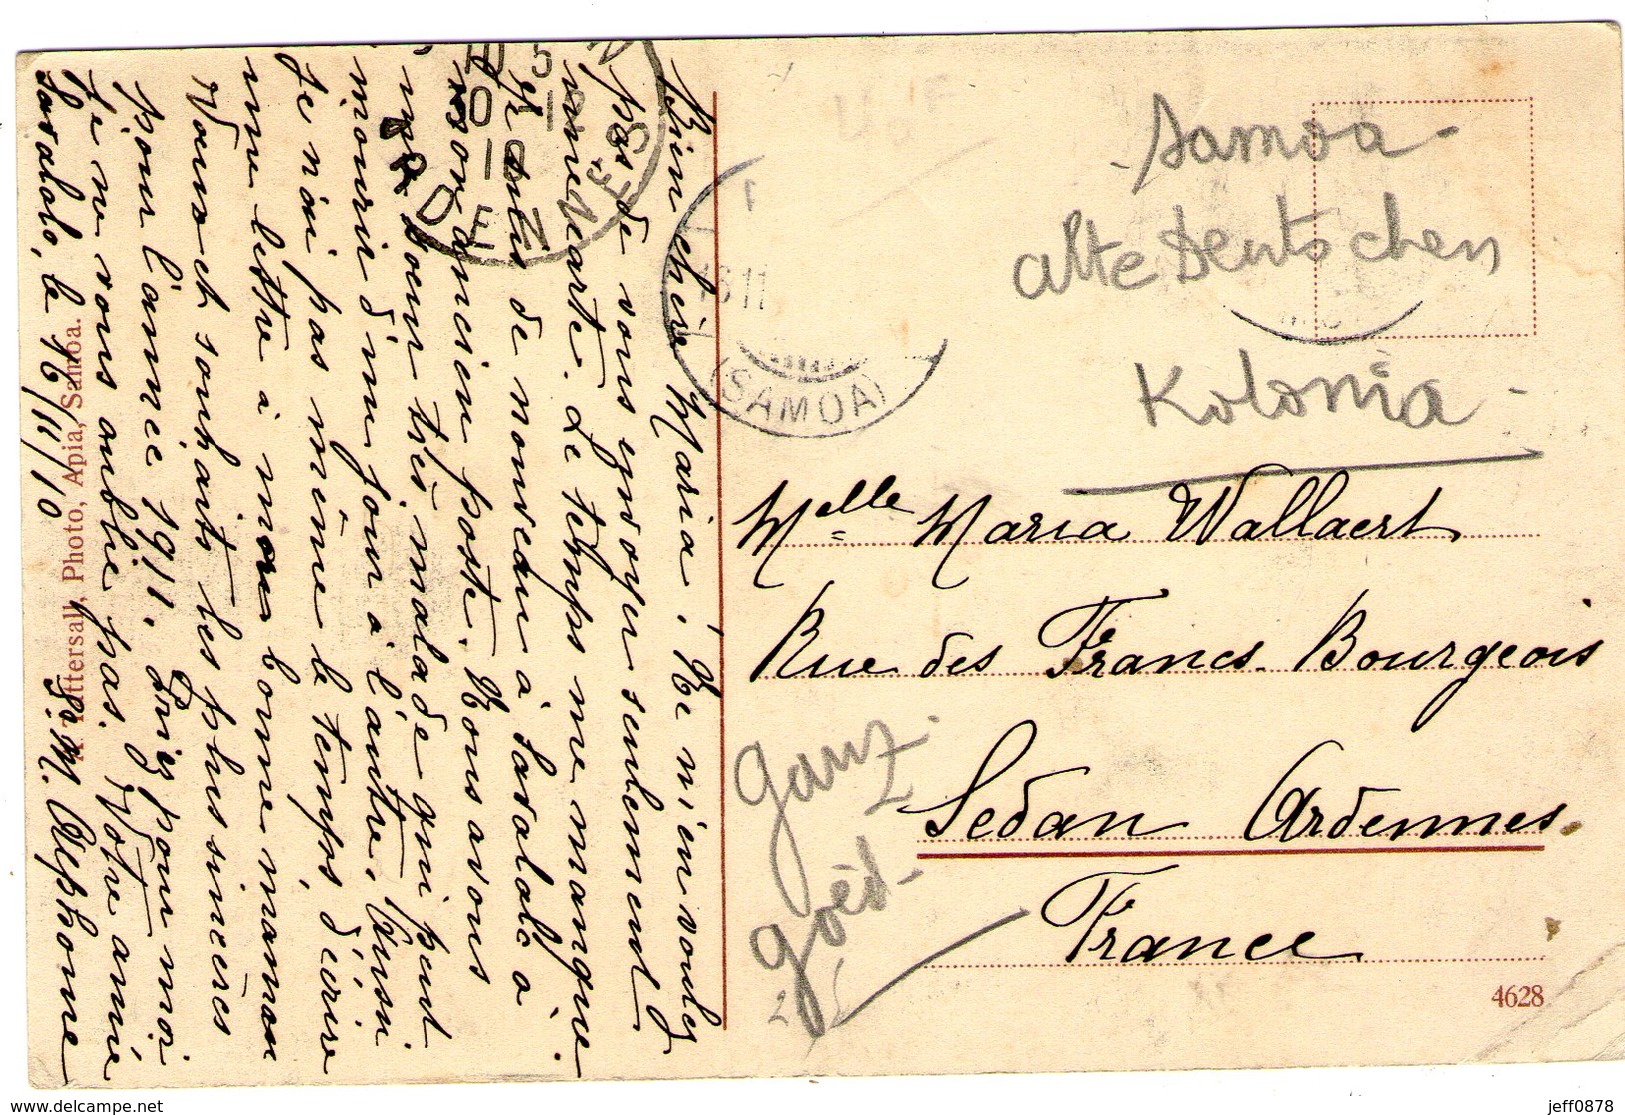 Bien chère Maria! Ne m'en voulez
pas de vous envoyer seulement
une carte. Le temps me manque.
Je suis de nouveau à Savalalo à
mon ancien poste. Nous avons
une soeur très malade qui peut
mourir d'un jour à l'autre. Aussi
je n'ai pas même le temps d'écrire
une lettre à ma bonne maman
Voeux et souhaits les plus sincères
pour l'année 1911. Priez pour moi
je ne vous oublie pas. Votre amie
Savalalo, le 16/11/10 Sr. M. Alphonse
A. Tattersall, Photo, Apia, Samoa.
SEDAN
ARDENNES
11
(SAMOA)
Samoa
alte Deutschen
Kolonia
Melle Maria Wallaert
Rue des Francs-Bourgeois
Sedan Ardennes.
France
ganz
goed
4628
www.delcampe.net
jeff0878